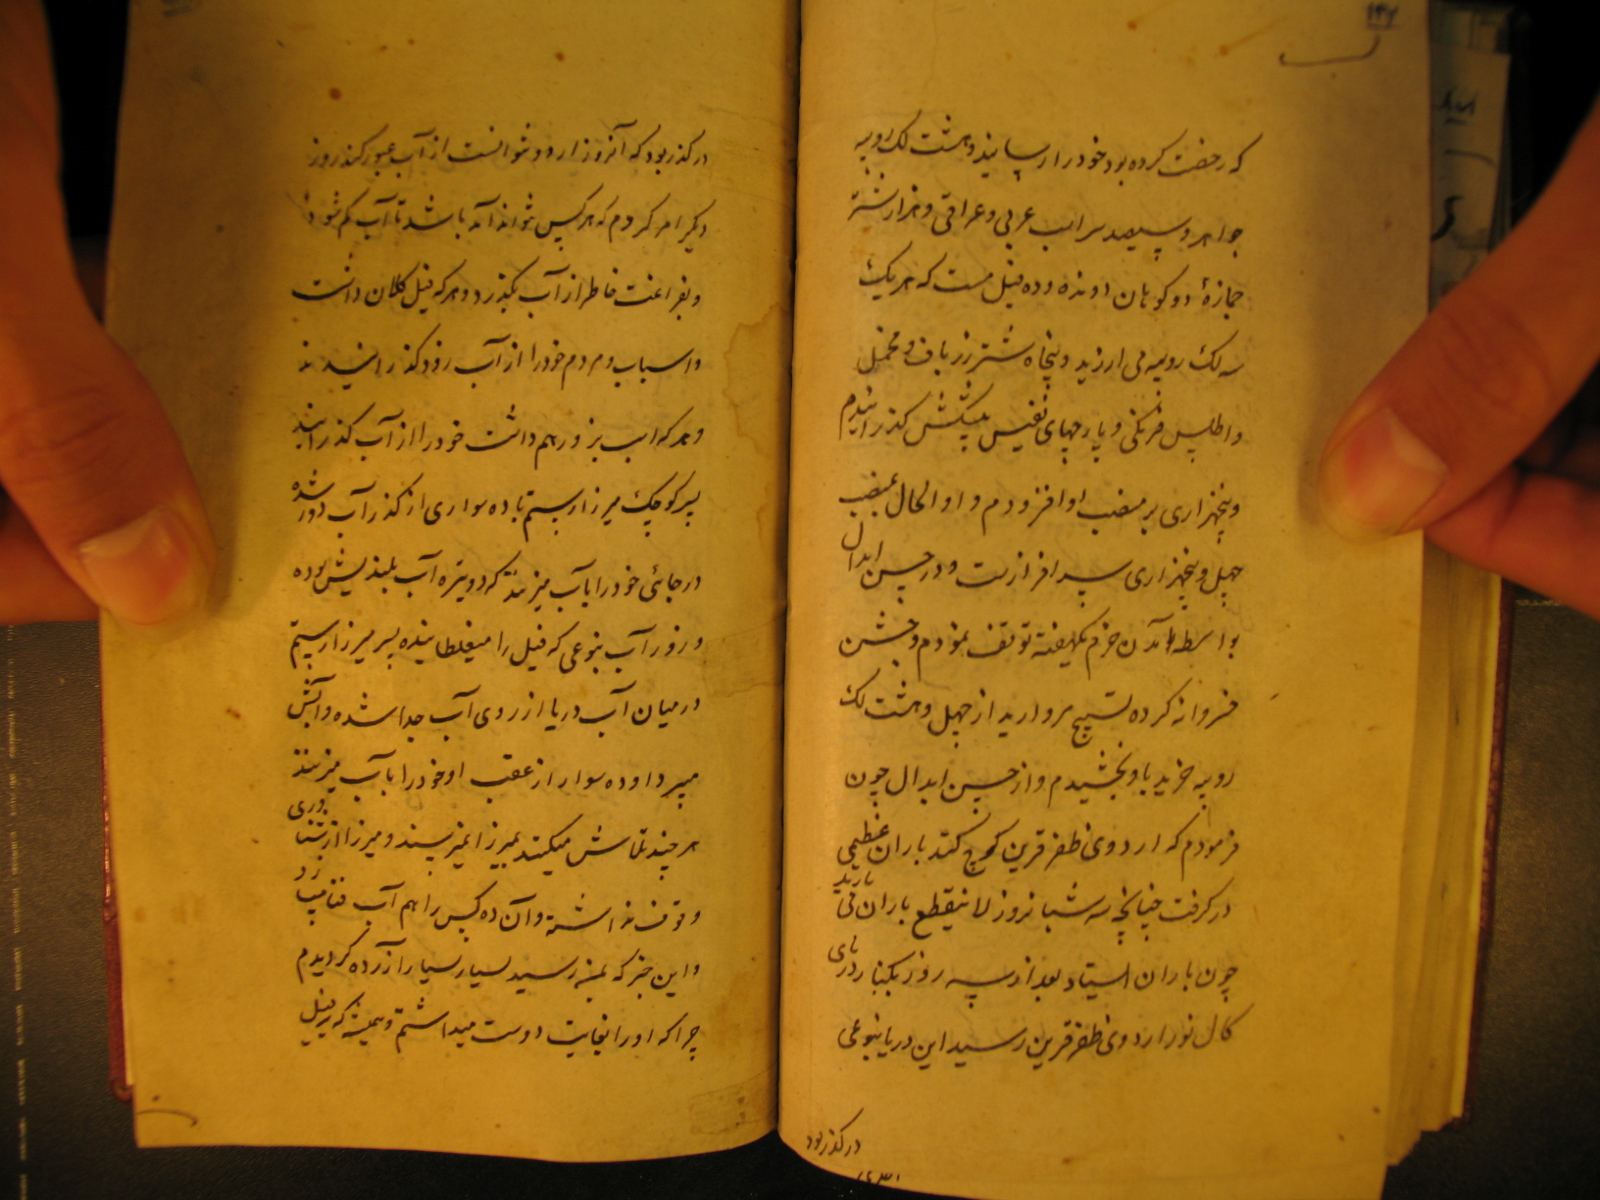 ۱۴۷
که رخصت کرده بود خود را رسانید و هشت لک روپیه
جواهر و سیصد سر اسب عربی و عراقی و هزار شتر
جمازهٔ دو کوهان دونده و ده فیل مست که هر یک
سه لک روپیه می ارزید و پنجاه شتر زرباف و مخمل
و اطلس فرنگی و پارچهای نفیس پیشکش گذرانیدم
و پنجهزاری بر منصب او افزودم و او الحال بمنصب
چهل و پنجهزاری سرافراز ست و در حسن ابدال
بواسطه آمدن خرم یکهفته توقف نمودم و جشن
خسروانه کرده تسبیح مروارید از چهل و هشت لک
روپیه خرید باو بخشیدم و از حسن ابدال چون
فرمودم که اردوی ظفر قرین کوچ کند باران عظیمی
در گرفت چنانچه سه شبانروز لا ینقطع باران می بارید
چون باران ایستاد بعد از سه روز بکنار دریای
کال نور اردوی ظفر قرین رسید این دریا بنوعی
در کذر بود
در کذر بود که آنروز اردو نتوانست از آب عبور کند روز
دیگر امر کردم که هرکس نتواند آمد باشد تا آب کم شود
و بفراغت خاطر از آب بگذرد و هر که فیل کلان داشت
و اسباب و مردم خود را از آب زود گذرانیدند
و هر که اسب بزور هم داشت خود را از آب گذرانید
پسر کوچک میرزا رستم با ده سواری از گذر آب دور شده
در جائی خود را بآب میزنند که دو نیزه آب بلندیش بوده
و زور آب بنوعی که فیل را میغلطانیده پسر میرزا رستم
در میان آب دریا از روی آب جدا شده و آبش
میبرد او ده سوار از عقب او خود را بآب میزنند
هر چند تلاش میکنند بمیرزا نمیرسند و میرزا از شناوری
وقوف نداشته و آن ده کس را هم آب فنا میبرد
و این خبر که بمن رسید بسیار بسیار آزرده گردیدم
چرا که او را بغایت دوست میداشتم و همیشه که بر فیل